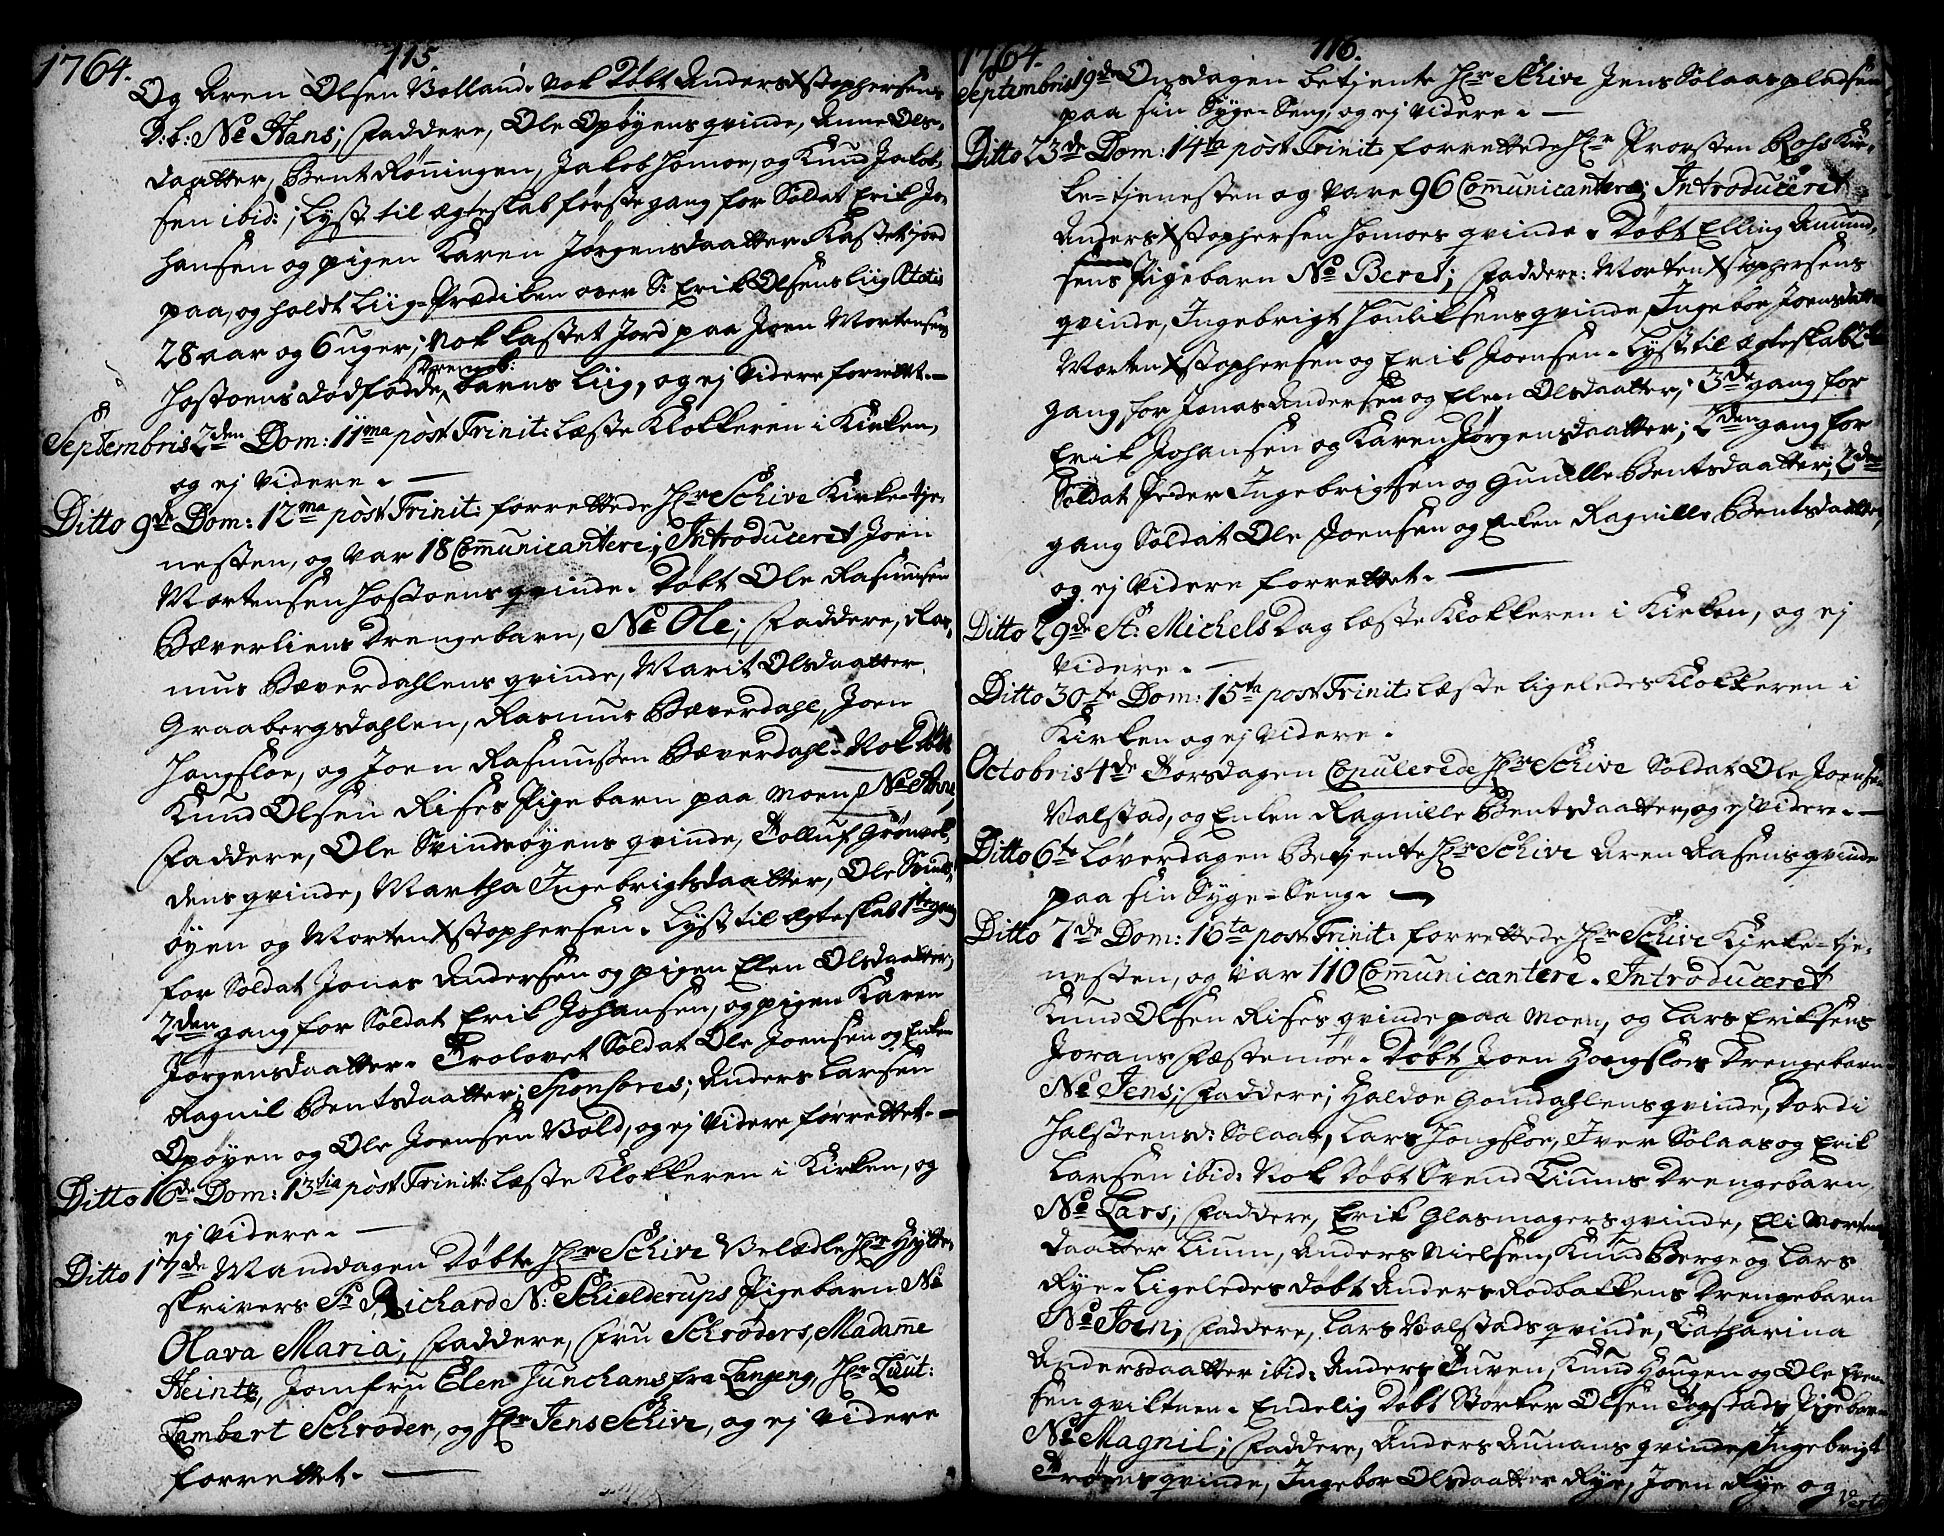 1764. 115.
Og Aren Olsen Bolland. Nok Døbt Anders Xstophersens
D: b: No Hans; Faddere, Ole Opøyens qvinde, Anne Ols-
daatter, Bent Rønningen, Jakob Homoe, og Knud Jakob-
sen ibid:; Lyst til ægteskab første gang for Soldat Erik Jo-
hansen og pigen Karen Jørgensdaatter. Kastet jord
paa, og holdt Liig-Prædiken over S: Erik Olsens liig Ætatis
28 aar og 6 uger; Nok kastet jord paa Joen Mortensens
Høstoens dødfødde Drengeb: barns liig, og ej videre forrettet.
Septembris 2den Dom: 11ma post Trinit: læste Klokkeren i Kirken,
og ej videre.
Ditto 9de Dom: 12ma post Trinit: forrettede Hr Schive Kirke-tje-
nesten, og var 18 Communicantere; Introduceret Joen
Mortensen Høstoens qvinde. Døbt Ole Rasmusen
Bæverliens Drengebarn, No Ole; Faddere, Ras-
mus Bæverdahlens qvinde, Marit Olsdaatter
Graabergsdahlen, Rasmus Bæverdahl, Joen
Hougsloe, og Joen Rasmussen Bæverdahl. Nok Døbt
Knud Olsen Rises Pigebarn paa Moen, No
Faddere, Ole Svindsøyens qvinde, Tolluf Grønvol-
dens qvinde, Martha Ingebrigtsdaatter, Ole Svinds-
øyen og Morten Xstophersen. Lyst til ægteskab 1te gang
for Soldat Jonas Andersen og pigen Elen Olsdaatter,
2den gang for Soldat Erik Johansen, og pigen Karen
Jørgensdaatter. Trolovet Soldat Ole Joensen og Enken
Ragnil Bentsdaatter; Sponsores; Anders Larsen
Opøyen og Ole Joensen Bold, og ej videre forrettet.
Ditto 16de Dom: 13tia post Trinit: læste Klokkeren i Kirken, og
ej videre.
Ditto 17de Manddagen Døbte Hr Schive Velædle Hr
skrivers Sr Richard N: Schielderups Pigebarn No
Olava Maria; Faddere, Fru Schrøders, Madame
Heintz, Jomfru Elen Junchans fra Langeng, Hr Lieut:
Lambert Schrøder, og Hr Jens Schive, og ej videre
forrettet.
1764. 116.
Septembris 19de Onsdagen betjente Hr Schive Jens Solaaspladsen
paa sin Syge-Seng, og ej videre.
Ditto 23de Dom: 14ta post Trinit: forrettede Hr Provsten Rohs Kir-
ke-tjenesten og vare 96 Communicantere; Introduceret
Anders Xstophersen Homoes qvinde. Døbt Elling Amund-
sens Pigebarn No Beret; Faddere: Morten Xstophersens
qvinde, Ingebrigt Houliksens qvinde, Ingebor Joensdatter
Morten Xstophersen og Erik Joensen. Lyst til ægteskab 2de
gang for Jonas Andersen og Elen Olsdaatter; 3de gang for
Erik Johansen og Karen Jørgensdaatter; 2den gang for
Soldat Peder Ingebrigtsen og Gunille Bentsdaatter; 2den
gang Soldat Ole Joensen og Enken Ragnille Bentsdaatter,
og ej videre forrettet.
Ditto 29de St. Michels Dag læste Klokkeren i Kirken, og ej
videre.
Ditto 30te Dom: 15ta post Trinit: læste ligeledes Klokkeren i
Kirken og ej videre.
Octobris 4de Torsdagen Copulerede Hr Schive Soldat Ole Joensen
Valstad, og Enken Ragnille Bentsdaatter, og ej videre.
Ditto 6te Løverdagen Betjente Hr Schive Aren Aasens qvinde
paa sin Syge-Seng.
Ditto 7de Dom: 16ta post Trinit: forrettede Hr Schive Kirke-tje-
nesten, og var 110 Communicantere. Introduceret
Knud Olsen Rises qvinde paa Moen, og Lars Eriksens
Jorans Fæstemøe. Døbt Joen Hougsloes Drengebarn
No Jens; Faddere; Haldoe Gomdahlens qvinde, Dordi
Halsteensd: Solaas, Lars Hougsloe, Iver Solaas og Erik
Larsen ibid: Nok Døbt Svend Liums Drengebarn,
No Lars; Faddere, Erik Glasmagers qvinde, Eli Mortens-
daatter Lium, Anders Nielsen, Knud Berge og Lars
Rye. Ligeledes døbt Anders Rødbakkens Drengebarn
No Joen; Faddere, Lars Valstads qvinde, Catharina
Andersdaatter ibid: Anders Turen, Knud Hougen og Ole
sen qviktnen. Endelig Døbt Størker Olsen Togstads Pigebarn
No Magnil; Faddere, Anders Aunans qvinde, Ingebrigt
Trøens qvinde, Ingebor Olsdaatter Rye, Joen Rye og